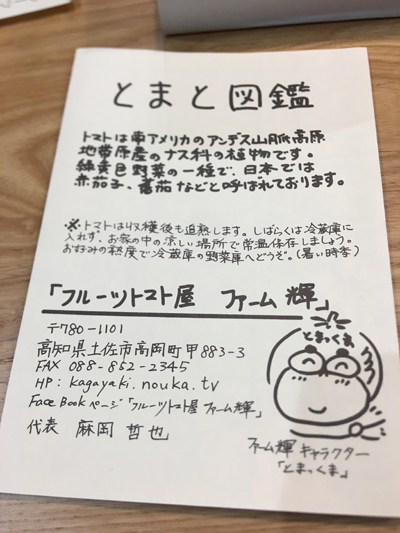 とまと図鑑
トマトは南アメリカのアンデス山脈高原
地帯原産のナス科の植物です。
緑黄色野菜の一種で、日本では
赤茄子、蕃茄などと呼ばれております。
※トマトは収穫後も追熟します。しばらくは冷蔵庫に
入れず、お家の中の涼しい場所で常温保存しましょう。
お好みの熟度で冷蔵庫の野菜庫へどうぞ。(暑い時季)
「フルーツトマト屋 ファーム輝」
〒780-1101
高知県土佐市高岡町甲883-3
FAX 088-852-2345
HP: kagayaki.nouka.tv
Face Bookページ「フルーツトマト屋 ファーム輝」
代表 麻岡 哲也
とまっくま
ファーム輝 キャラクター
「とまっくま」